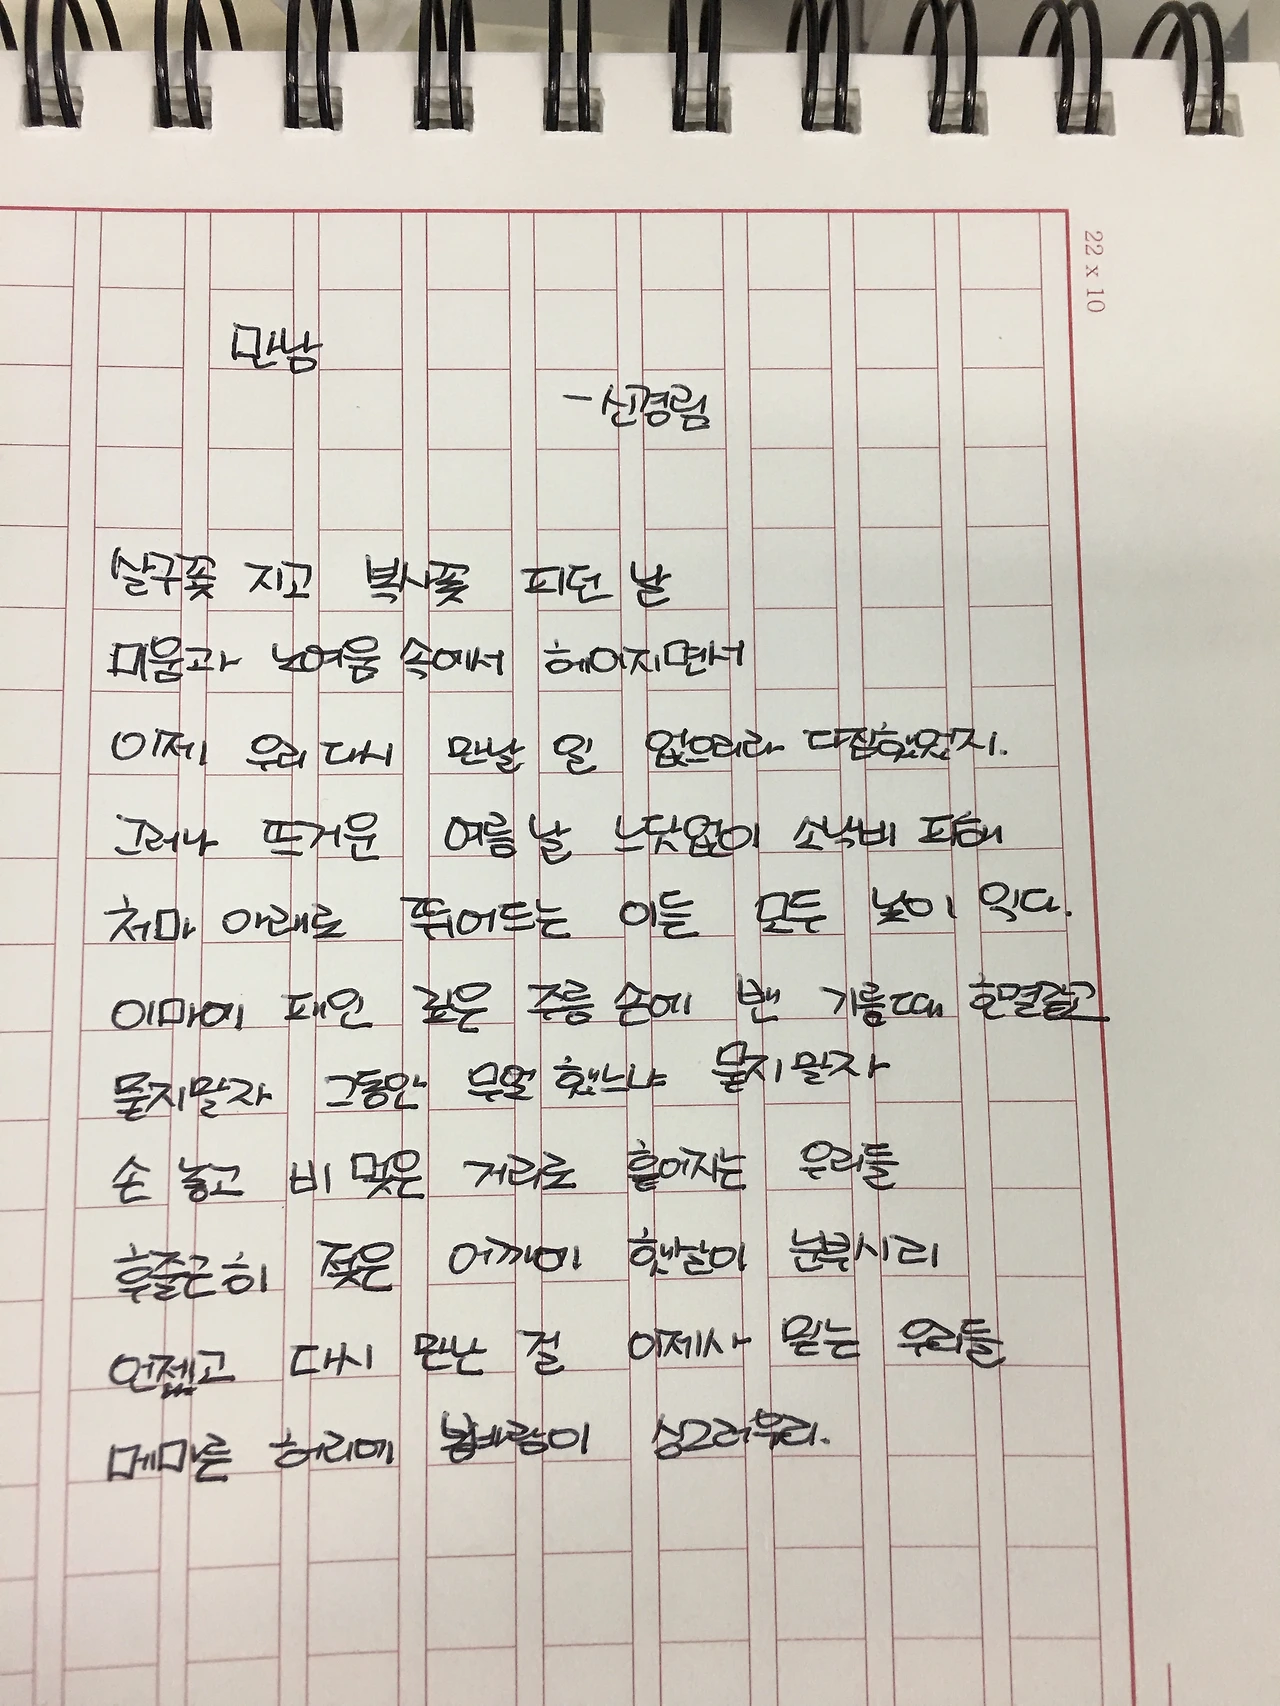 22 x 10
만남
- 신경림
살구꽃 지고 복사꽃 피던 날
미움과 노여움 속에서 헤어지면서
이제 우리 다시 만날 일 없으리라 다짐했었지.
그러나 뜨거운 여름날 느닷없이 소낙비 피해
처마 아래로 뛰어드는 이들 모두 낯이 익다.
이마에 패인 깊은 주름 손에 밴 기름때 한결같고
묻지말자 그동안 무얼 했느냐 묻지말자
손 놓고 비 멎은 거리로 흩어지는 우리들
후줄근히 젖은 어깨에 햇살이 눈부시리
언젠고 다시 만난 걸 이제사 믿는 우리들
메마른 허리에 봄바람이 싱그러우리.